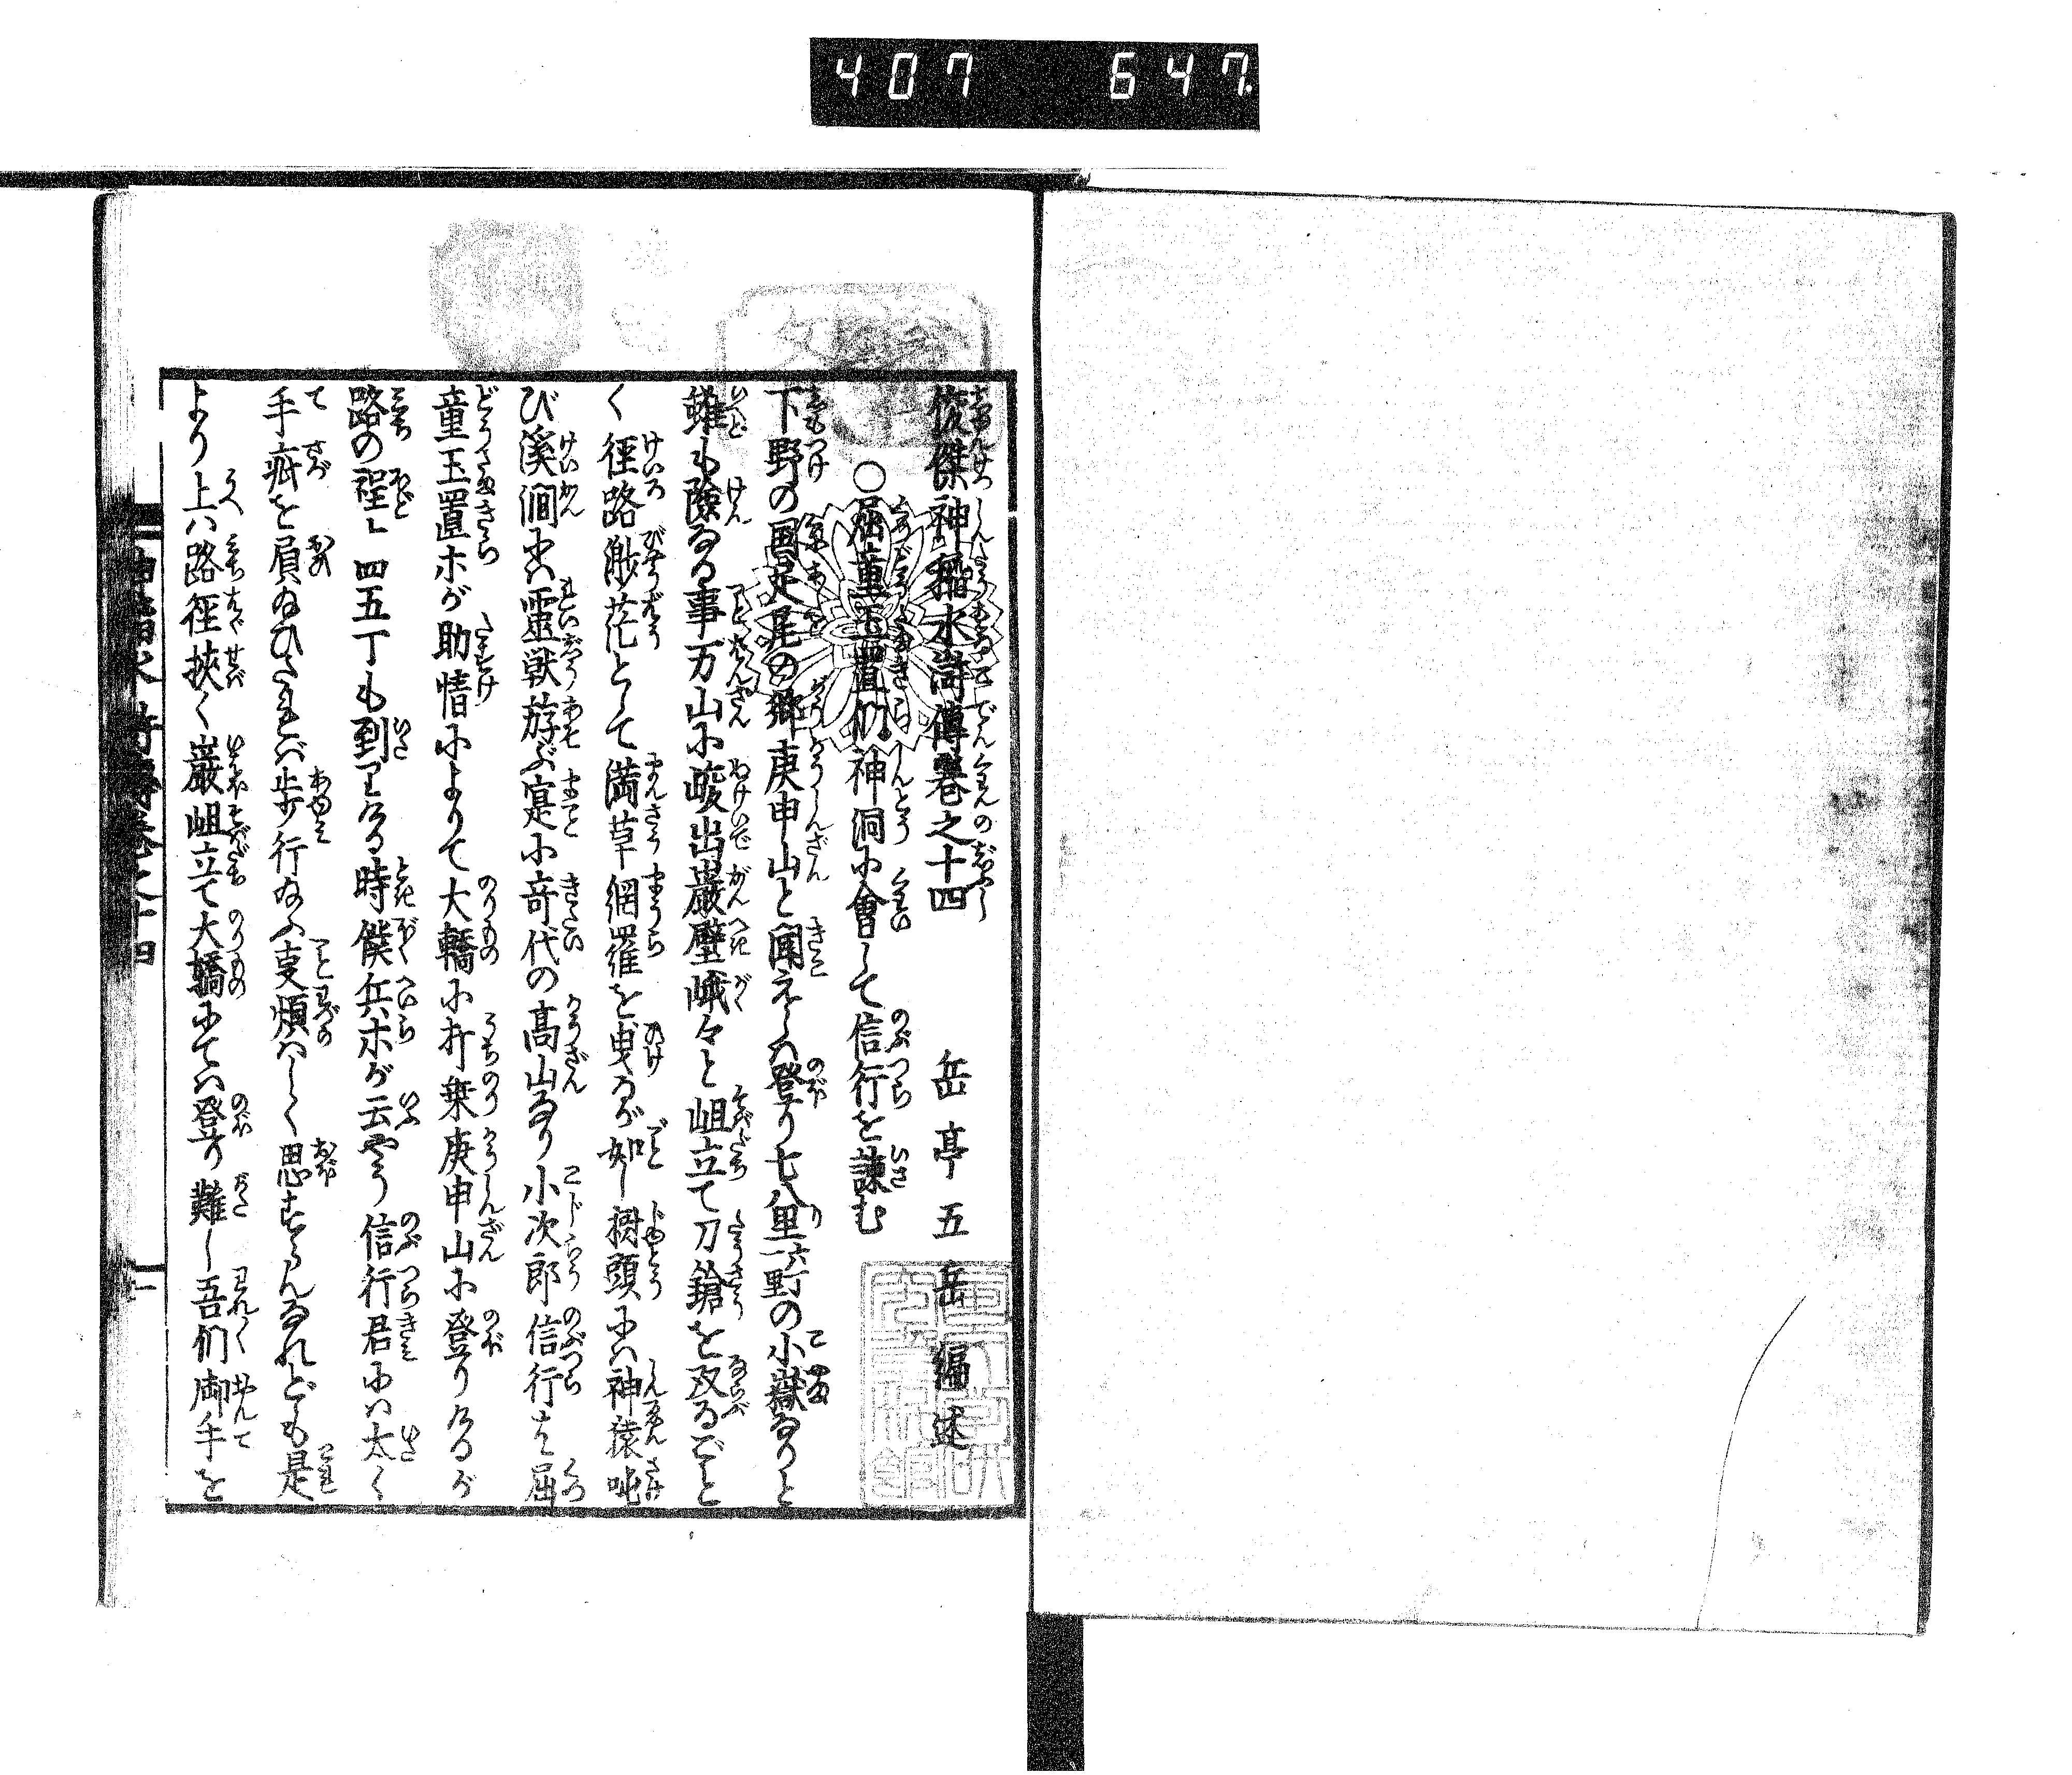 407 647
俊傑神稲水滸傳巻之十四
岳亭五岳編述
○屈童玉置们神洞小會して信行を諫む
下野の国足尾の郷庚申山と聞えしハ登り七八里六町の小嶽なりと
雖も險なる事万山小䧺出巌壁峨々と岨立て刀鎗を双るごと
く徑路渺茫として満草網羅を曳るが如し樹頭にハ神猿叫
び溪澗にハ霊獣游ぶ寔小奇代の高山なり小次郎信行は屈
童玉置ホが助情小よりて大轎小打乗庚申山小登りけるが
路の程ヒ四五丁も到りける時僕兵ホが云やう信行君にハ太く
手疵を屓ゐひされバ歩行ゐふ叓煩ハしく思すらんなれども是
より上ハ路徑挾く巌岨立て大轎にてハ登り難し吾们御手を